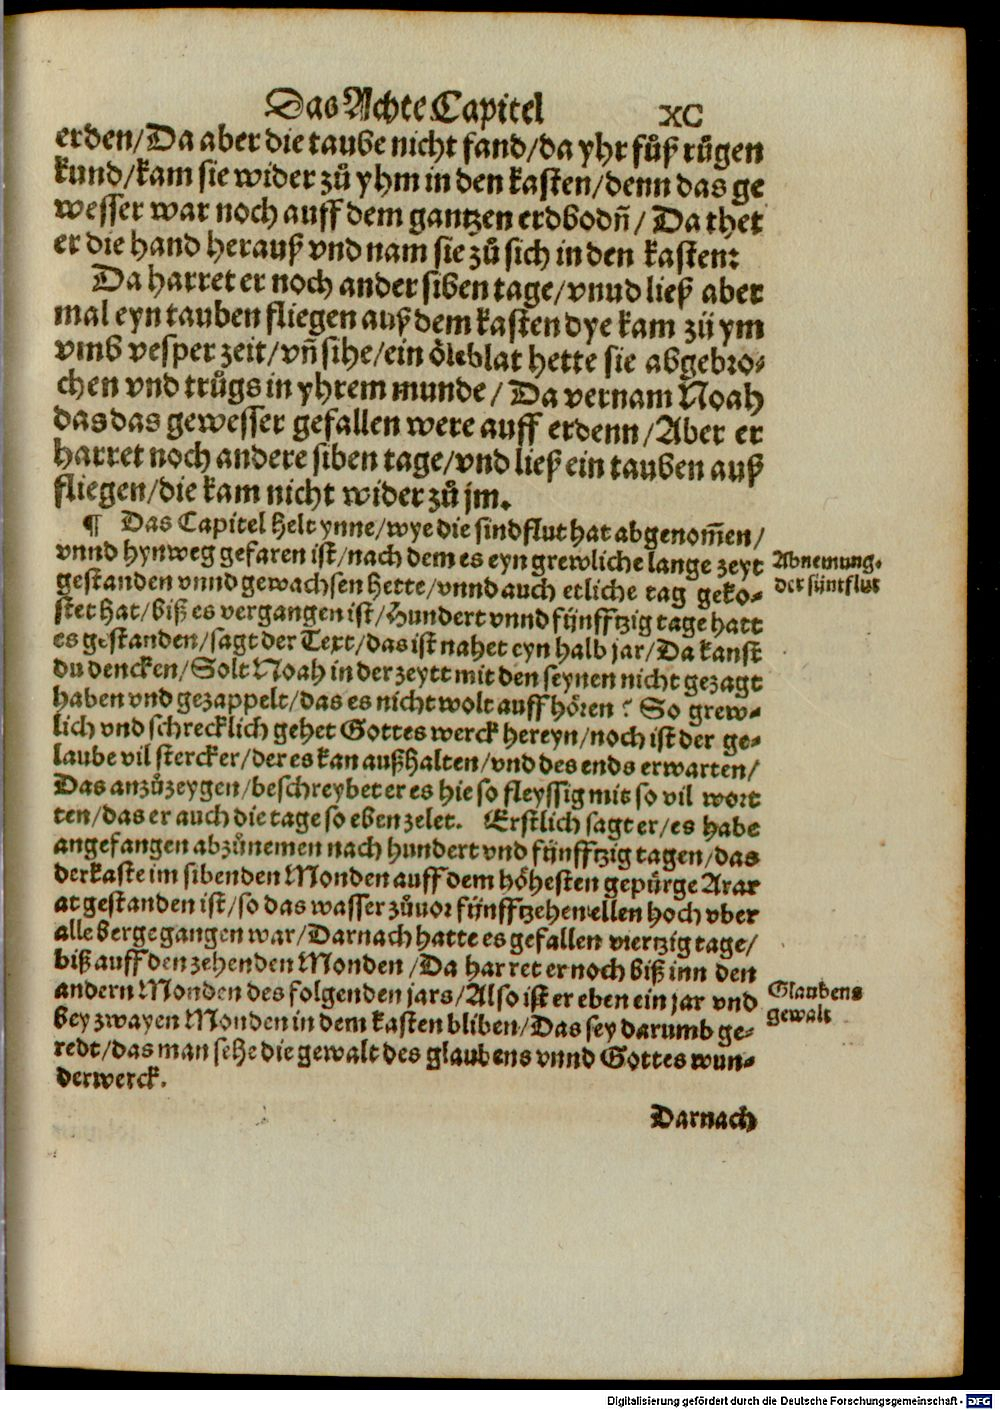 Das Achte Capitel XC
erden/Da aber die taube nicht fand/da yhr fůß růgen
kund/kam sie wider zů yhm in den kasten/denn das ge
wesser war noch auff dem gantzen erdbodñ/Da thet
er die hand herauß vnd nam sie zů sich in den kasten:
Da harret er noch ander siben tage/vnnd ließ aber
mal eyn tauben fliegen auß dem kasten dye kam zů ym
vmb vesper zeit/vñ sihe/ein öleblat hette sie abgebro-
chen vnd trůgs in yhrem munde/Da vernam Noah
das das gewesser gefallen were auff erdenn/Aber er
harret noch andere siben tage/vnd ließ ein tauben auß
fliegen/die kam nicht wider zů jm.
¶ Das Capitel helt ynne/wye die sindflut hat abgenom̃en/
vnnd hynweg gefaren ist/nach dem es eyn grewliche lange zeyt
gestanden vnnd gewachsen hette/vnnd auch etliche tag geko-
stet hat/biß es vergangen ist/Hundert vnnd fünfftzig tage hatt
es gestanden/sagt der Text/das ist nahet eyn halb jar/Da kanst
du dencken/Solt Noah in der zeytt mit den seynen nicht gezagt
haben vnd gezappelt/das es nicht wolt auff hören? So grew-
lich vnd schrecklich gehet Gottes werck hereyn/noch ist der ge-
laube vil stercker/der es kan außhalten/vnd des ends erwarten/
Das anzůzeygen/beschreybet er es hie so fleyssig mit so vil wort
ten/das er auch die tage so eben zelet. Erstlich sagt er/es habe
angefangen abzůnemen nach hundert vnd fünfftzig tagen/das
der kaste im sibenden Monden auff dem höhesten gepürge Arar
at gestanden ist/so das wasser zůuor fünfftzehen ellen hoch vber
alle berge gangen war/Darnach hatte es gefallen viertzig tage/
biß auff den zehenden Monden/Da harret er noch biß inn den
andern Monden des folgenden jars/Also ist er eben ein jar vnd
bey zwayen Monden in dem kasten bliben/Das sey darumb ge-
redt/das man sehe die gewalt des glaubens vnnd Gottes wun-
derwerck.
Darnach
Abnemung
der süntflut
Glaubens
gewalt
Digitalisierung gefördert durch die Deutsche Forschungsgemeinschaft - DFG